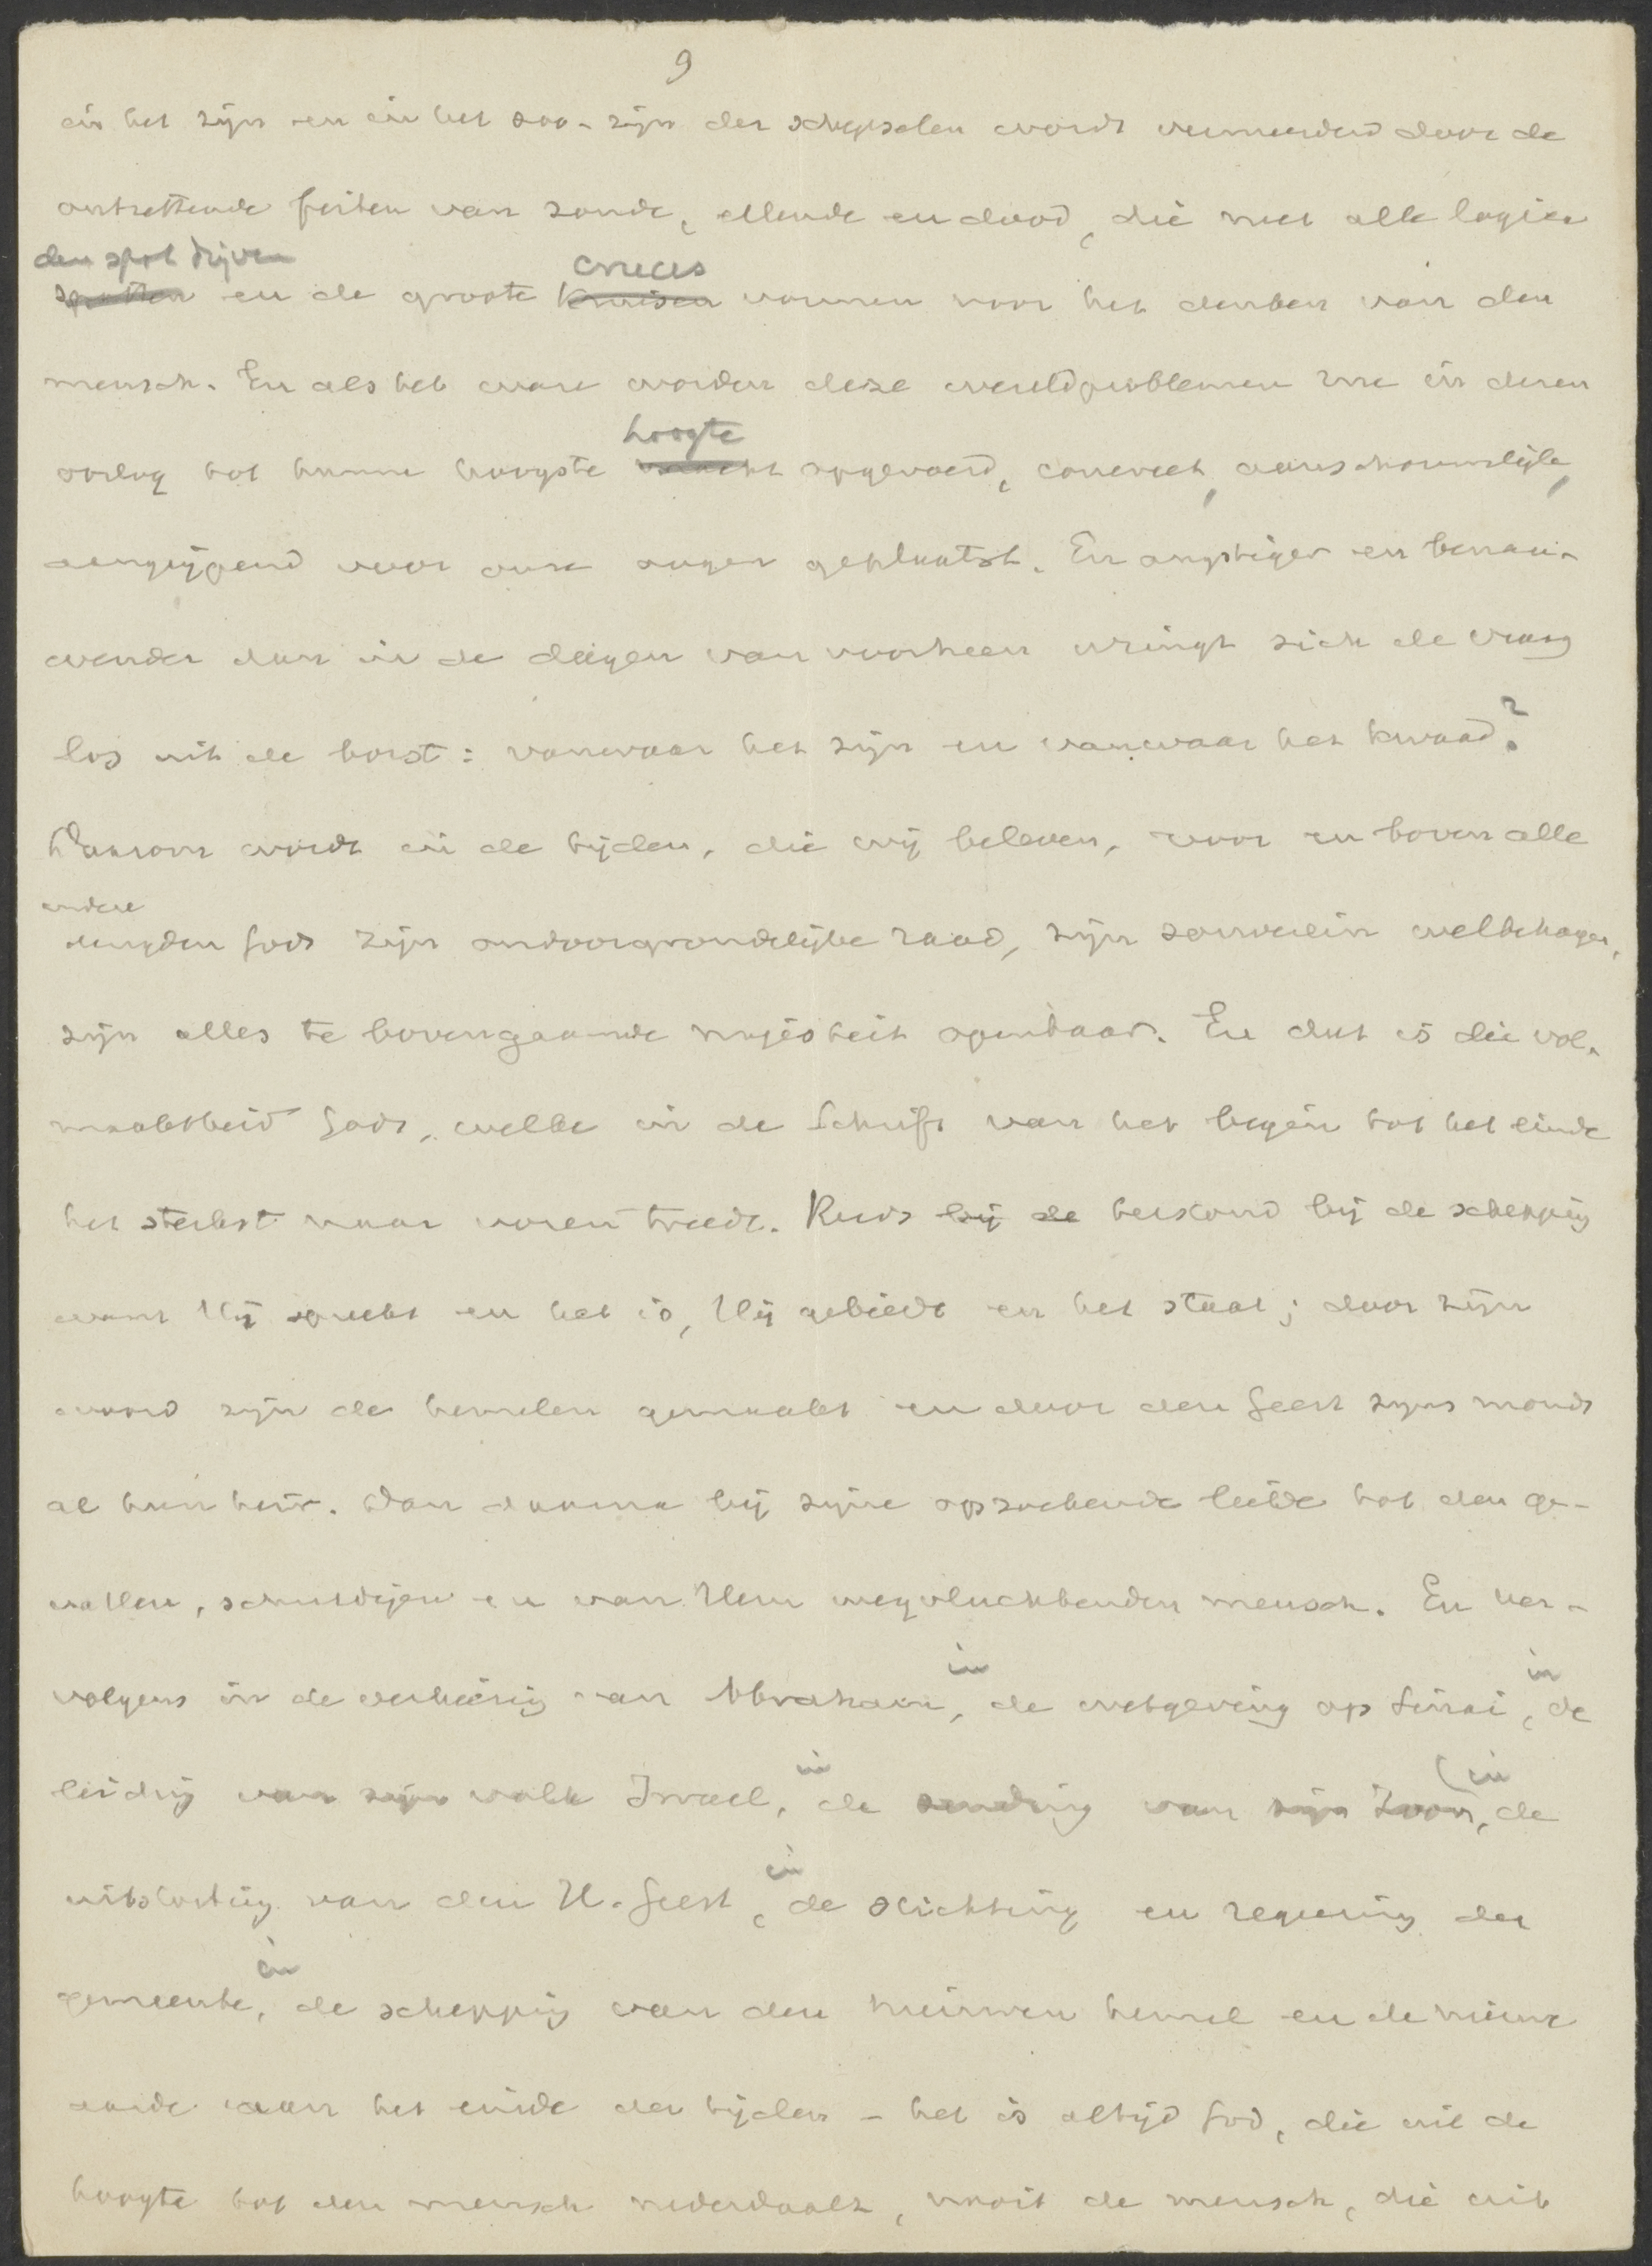 9
in het zijn en in het zoo-zijn der schepselen wordt vermeerderd door de
ontzettende feiten van zonde, ellende en dood, die met alle logica
den spot drijven cruces
spotten en de groote kruisen vormen voor het denken van den
mensch. En als het ware worden deze wereldproblemen nu in dezen
hoogte
oorlog tot hunne hoogste opgevoerd, concreet, aanschouwelijk,
aangrijpend voor onze oogen geplaatst. En angstiger en benau-
wender dan in de dagen van voorheen wringt zich de vraag
los uit de borst: vanwaar het zijn en vanwaar het kwaad?
Daarom wordt in de tijden, die wij beleven, voor en boven alle
andere
deugden Gods zijn ondoorgrondelijke raad, zijn souverein welbehagen,
zijn alles te bovengaande majesteit openbaar. En dat is die vol-
maaktheid Gods, welke in de Schrift van het begin tot het einde
het sterkst naar voren treedt. Reeds bij de terstond bij de schepping
want Hij spreekt en het is, Hij gebiedt en het staat; door zijn
woord zijn de hemelen gemaakt en door den Geest zijns monds
al hun heir. Dan daarna bij zijne opzoekende liefde tot den ge-
vallen, schuldigen en van Hem wegvluchtenden mensch. En ver-
in in
volgens in de verkiezing van Abraham, de wetgeving op Sinai, de
in (in
leiding van zijn volk Israel, de zending van zijn Zoon, de
in
uitstorting van den H. Geest, de stichting en regeering der
in
gemeente, de schepping van den nieuwen hemel en de nieuwe
aarde aan het einde der tijden - het is altijd God, die uit de
hoogte tot den mensch nederdaalt, nooit de mensch, die uit